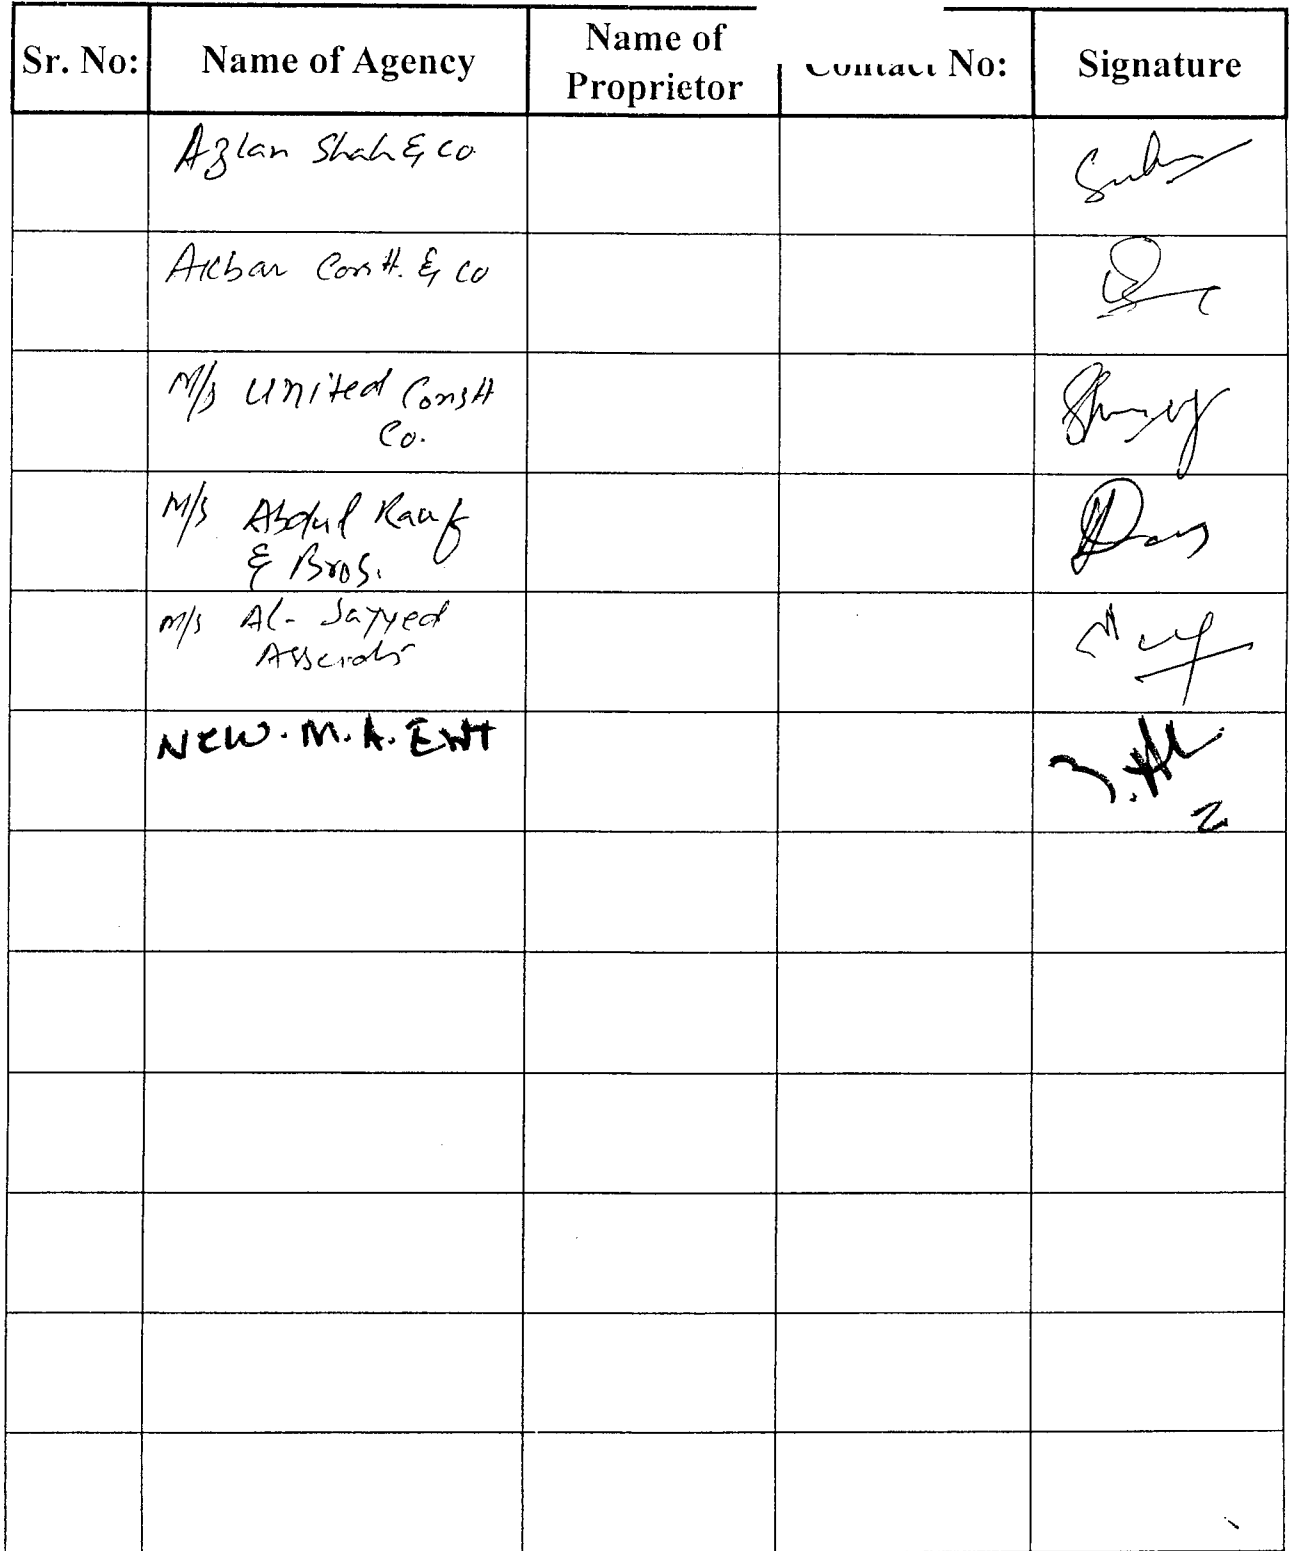 Sr. No:
Name of Agency
Name of
Proprietor
Contact No:
Signature
Azlan Shah & Co
Akbar Constt. & Co
M/s United Constt
Co.
M/s Abdul Rauf
& Bros.
M/s Al- Sayyed
NEW. M. A. ENT